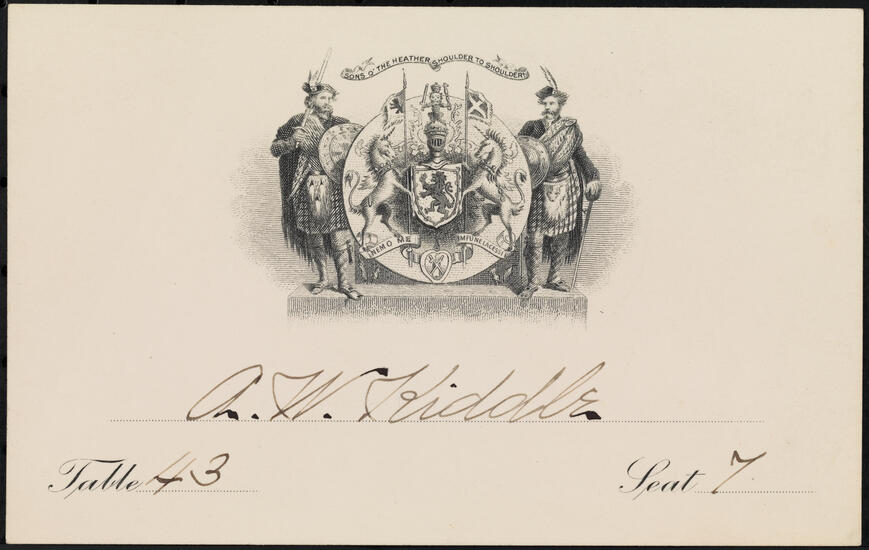 SONS O' THE HEATHER SHOULDER TO SHOULDER!
NEMO ME IMPUNE LACESSIT
A. W. Kiddle
Table 43 Seat 7